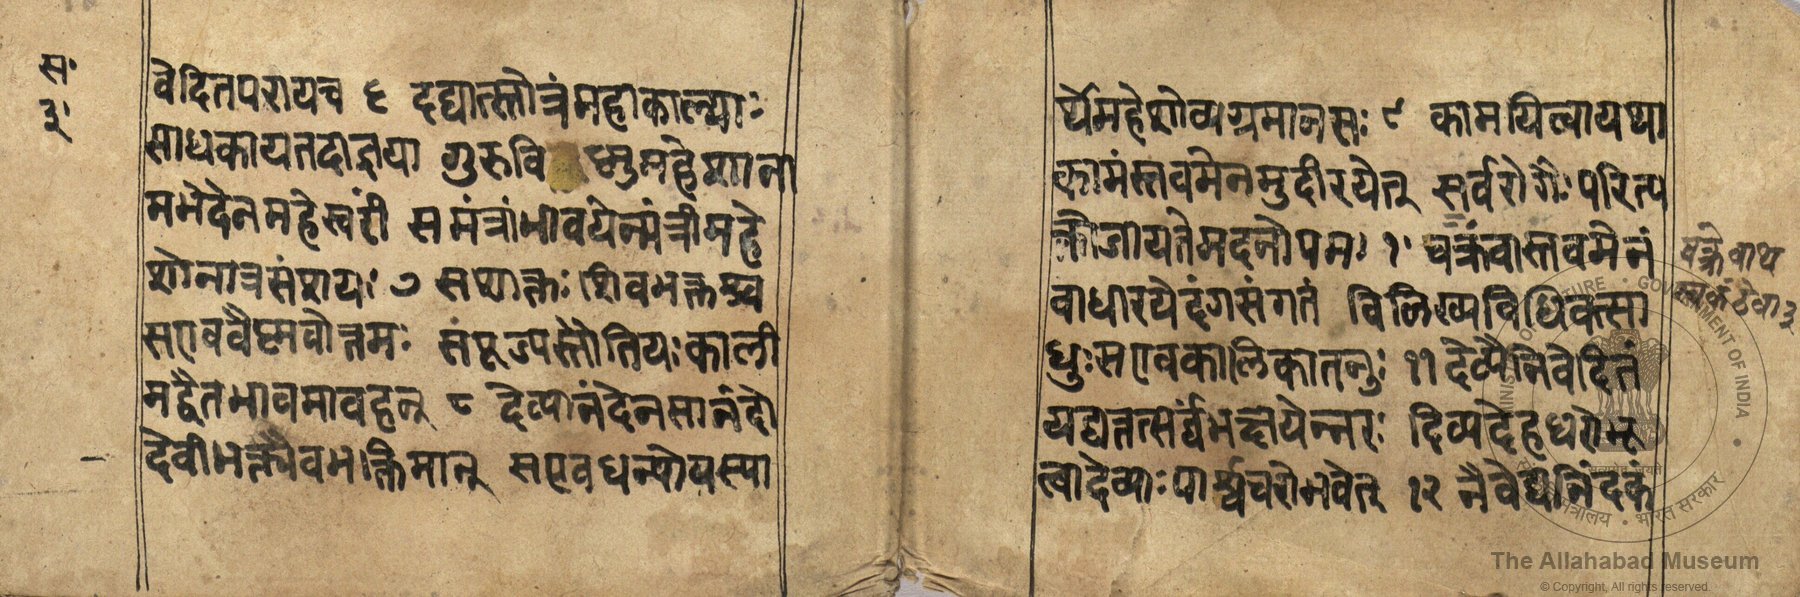 स॰
३॑
वेदितपरायच ६ दद्यात्स्तोत्रंमहाकाल्याः
साधकायतदाज्ञया गुरुवि ष्णुमहेशाना
मभेदेनमहेस्वरीं समंत्रांभावयेन्मंत्रीमहे
शोनात्रसंशयः ७ सशाक्तः शिवभक्तश्च
सएववैष्णवोत्तमः संपूज्यस्तौतियःकाली
मद्वैतभावमावहन् ८ देव्यानंदेनसानंदो
देवीभक्तैवभक्तिमान् सएवधन्योयस्या
र्थेमहेशोव्यग्रमानसः ९ कामयित्वायथा
कामंस्तवमेनमुदीरयेत् सर्वरोगैः परित्य
क्तोजायतेमदनोपमः १॰ चक्रंवास्तवमेनं
वाधारयेदंगसंगतं विलिख्यविधिवत्सा
धुः सएवकालिकातनुः ११ देव्यैनिवेदितं
यद्यत्तत्सर्वंभक्षयेन्नरः दिव्यदेहधरोभू
त्वादेव्याः पार्श्वचरोभवेत् १२ नैवेद्यनिंदकं
The Allahabad Museum
© Copyright, All rights reserved
MINISTRY OF CULTURE • GOVERNMENT OF INDIA
सत्यमेव जयते
संस्कृति मंत्रालय • भारत सरकार